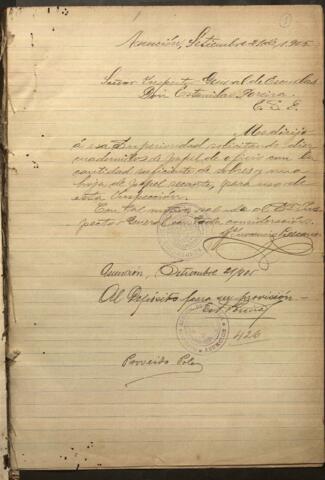 Asunción, Setiembre 2 de 1905
Señor Inspector General de Escuelas
Don Estanilao Pereira
E. S. D.
Me dirijo
á esa Superioridad solicitando diez
cuadernitos de papel de oficio con la
cantidad suficiente de sobres y una
hoja de papel secante, para uso de
esta Inspección.
Con tal motivo saluda al Señor Ins-
pector General con toda consideración
Asunción, Setiembre 2/905
Al Depósito para su provisión
426
Proveido